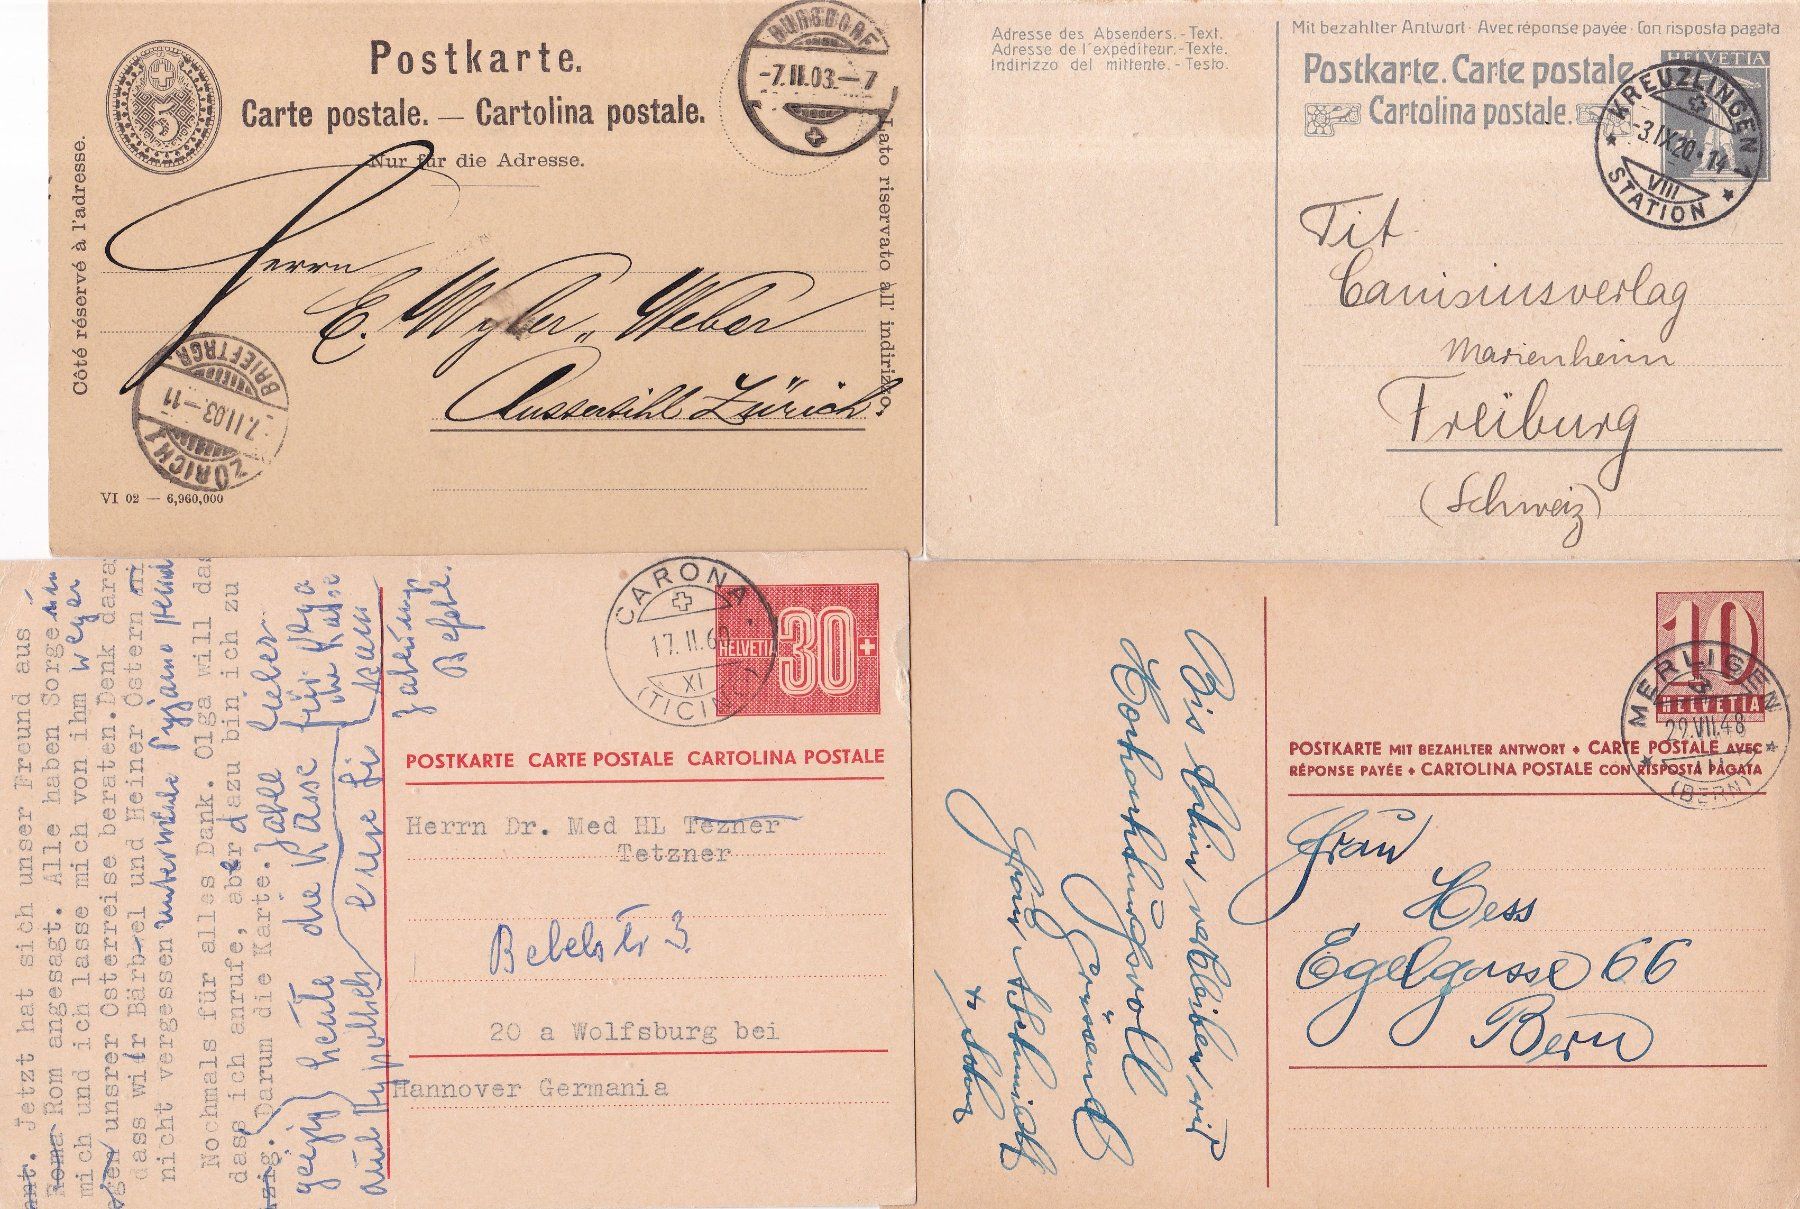 Postkarte.
Carte postale. — Cartolina postale.
Nur für die Adresse.
Côté réservé à l'adresse.
Lato riservato all' indirizzo.
BURGDORF
-7.II.03.—7
Herrn
E. Wyler-Weber
Aussersihl Zürich
BRIEFTRGR.
-7.II.03.—11
ZÜRICH 1
VI 02 — 6,960,000
Adresse des Absenders. - Text.
Adresse de l'expéditeur. - Texte.
Indirizzo del mittente. - Testo.
Mit bezahlter Antwort · Avec réponse payée · Con risposta pagata
Postkarte. Carte postale
Cartolina postale.
HELVETIA
KREUZLINGEN 1
-3.IX.20.-14
VIII
STATION
Tit.
Canisiusverlag
Marienheim
Freiburg
(Schweiz)
ant. Jetzt hat sich unser Freund aus
Roma Rom angesagt. Alle haben Sorge um
mich und ich lasse mich von ihm wegen
unsrer Osterreise beraten. Denk dara
dass wir Bärbel und Heiner Ostern
nicht vergessen
Nochmals für alles Dank. Olga will das
dass ich anrufe, aber dazu bin ich zu
Darum die Karte. Zahle lieber
geizig) heute die Kasse für Olga
CARONA
17.II.6
XI
(TICINO)
HELVETIA
30
POSTKARTE CARTE POSTALE CARTOLINA POSTALE
Herrn Dr. Med HL Tezner
Tetzner
Bebelstr 3
20 a Wolfsburg bei
Hannover Germania
Bis dahin verbleiben wir
Hochachtungsvoll
Grüssend
Frau
10
HELVETIA
MERLIGEN
29.VII.48
(BERN)
POSTKARTE MIT BEZAHLTER ANTWORT + CARTE POSTALE AVEC
RÉPONSE PAYÉE + CARTOLINA POSTALE CON RISPOSTA PAGATA
Frau
Hess
Egelgasse 66
Bern